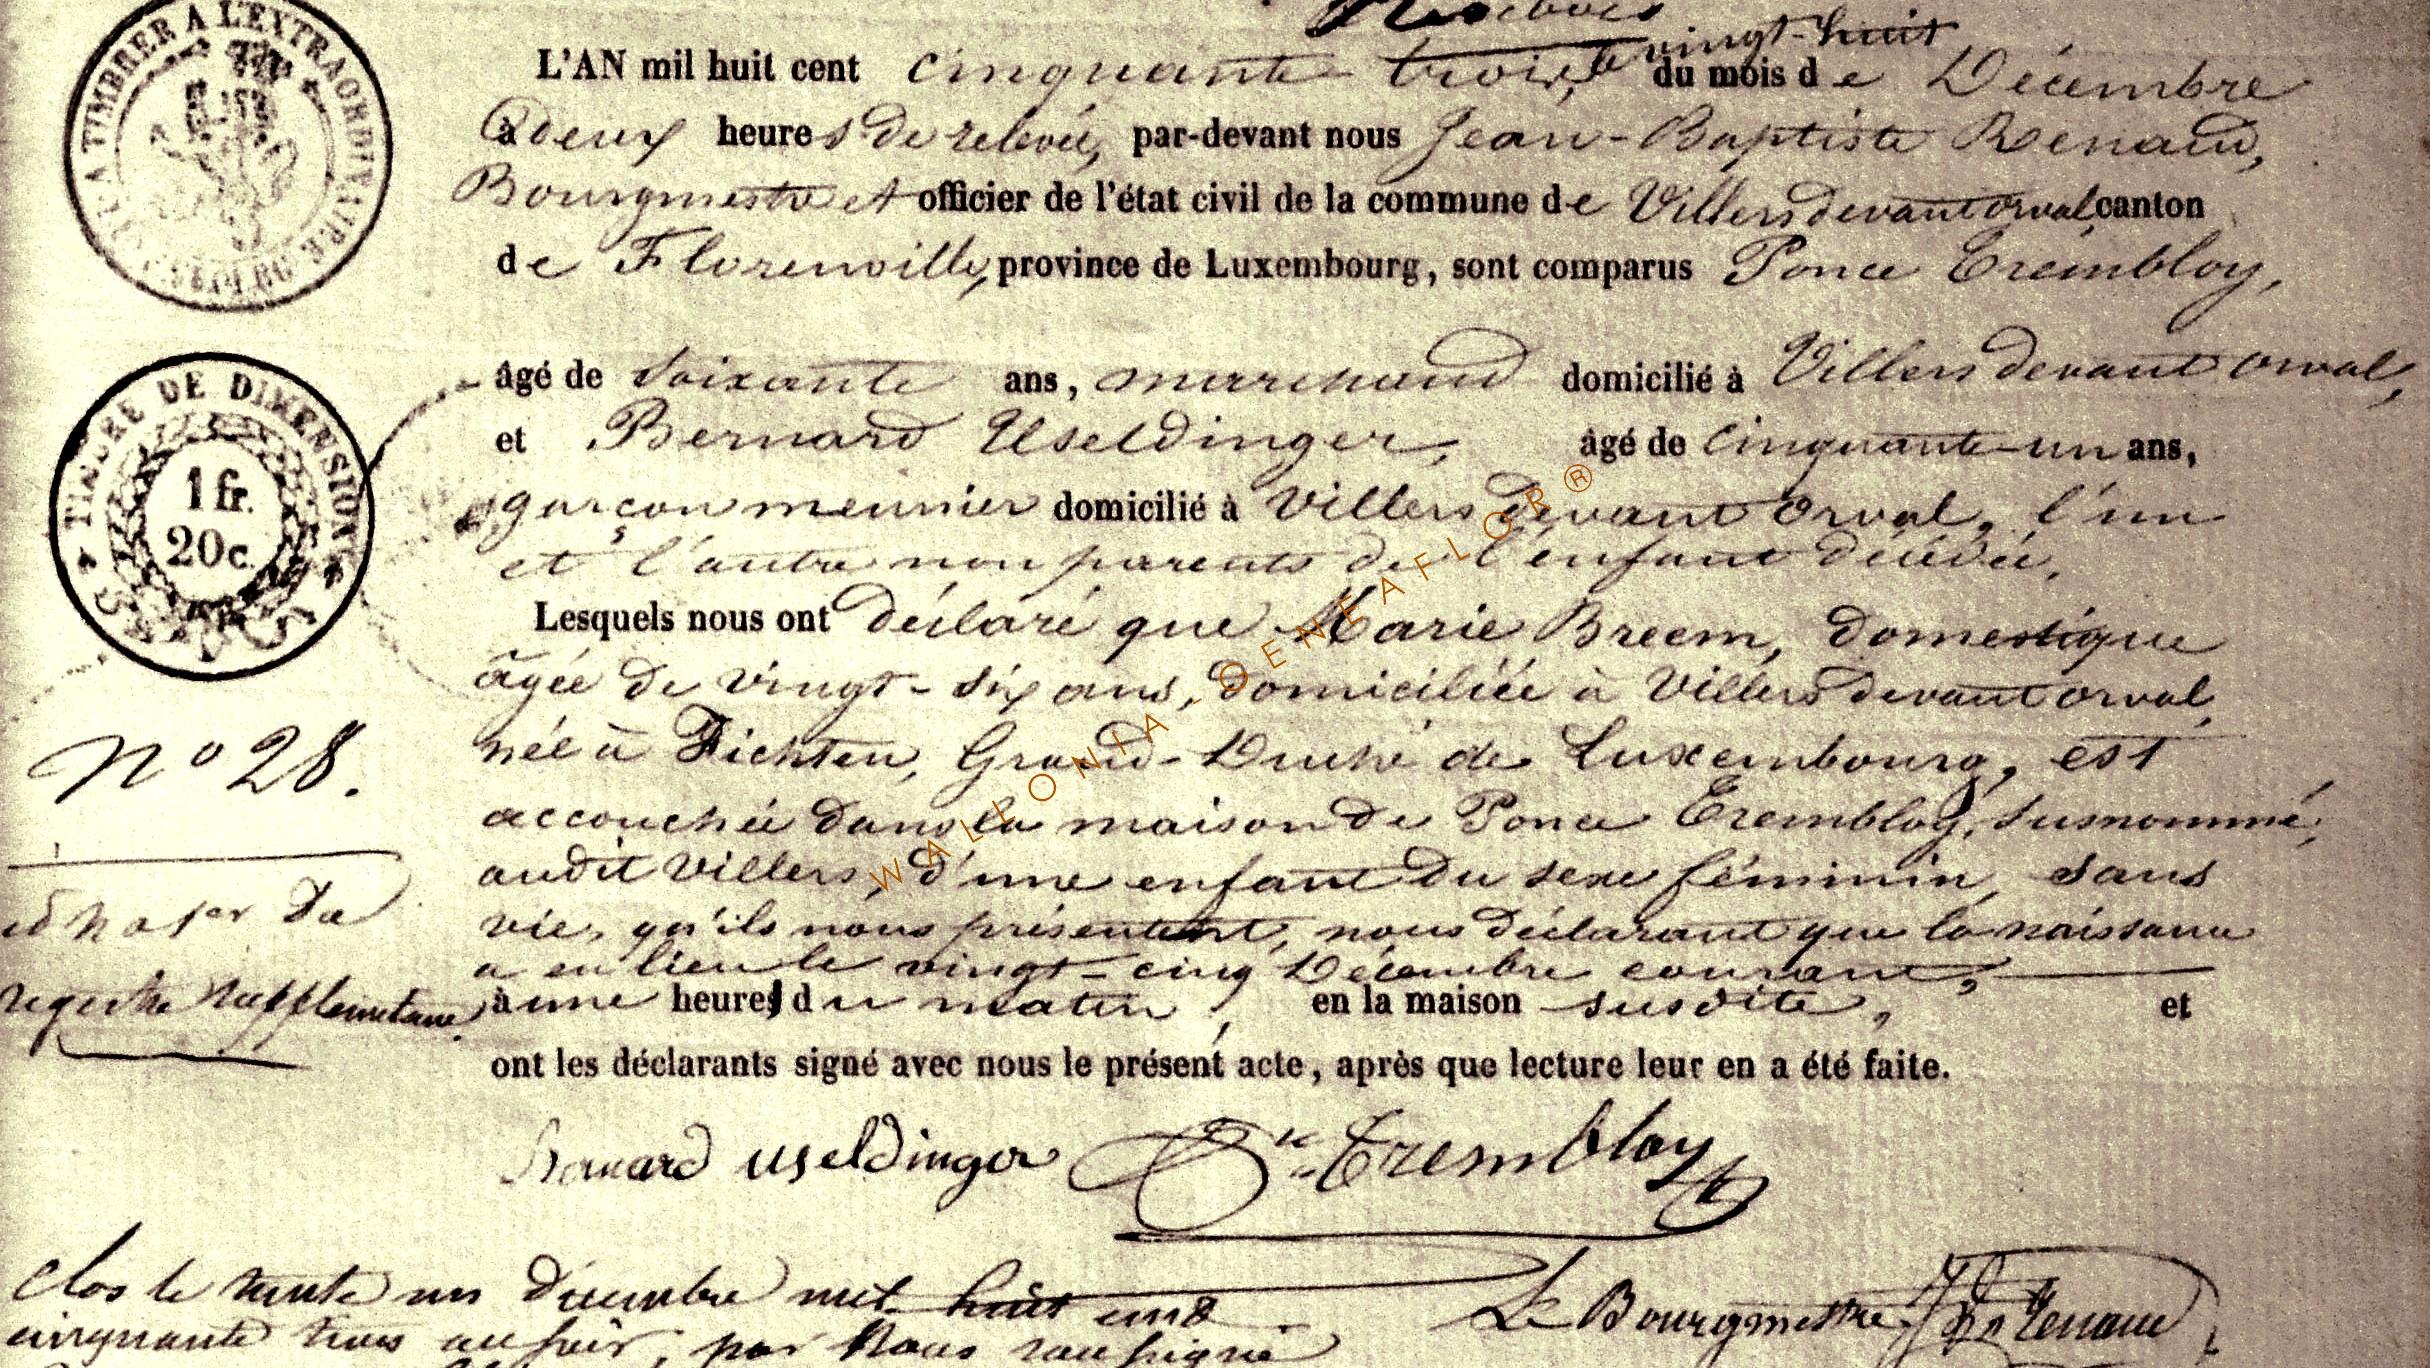 A TIMBRER A L'EXTRAORDINAIRE
L'AN mil huit cent cinquante trois, le vingt-huit du mois de Décembre
à deux heures de relevée, par-devant nous Jean-Baptiste Renaud,
Bourgmestre et officier de l'état civil de la commune de Villers devant orval, canton
de Florenville, province de Luxembourg, sont comparus Ponce Trembloy,
âgé de soixante ans, marchand domicilié à Villers devant orval,
et Bernard Useldinger, âgé de cinquante-un ans,
garçon meunier domicilié à Villers devant orval, l'un
et l'autre non parents de l'enfant décédée.
Lesquels nous ont déclaré que Marie Breem, domestique
âgée de vingt-six ans, domiciliée à Villers devant orval,
née à Fichten, Grand-Duché de Luxembourg, est
accouchée dans la maison de Ponce Trembloy, susnommé,
audit Villers, d'une enfant du sexe féminin, sans
vie, qu'ils nous présentent, nous déclarant que la naissance
a eu lieu le vingt-cinq Décembre courant,
à une heure du matin, en la maison susdite, et
ont les déclarants signé avec nous le présent acte, après que lecture leur en a été faite.
TIMBRE DE DIMENSION
1 fr.
20 c.
No 28.
du
registre supplémentaire
Bernard Useldinger Trembloy
Clos le trente un Décembre mil huit cent
cinquante trois au soir, par Nous soussigné
Le Bourgmestre, Renaud
WALLONIA-DENEAFLOR ®